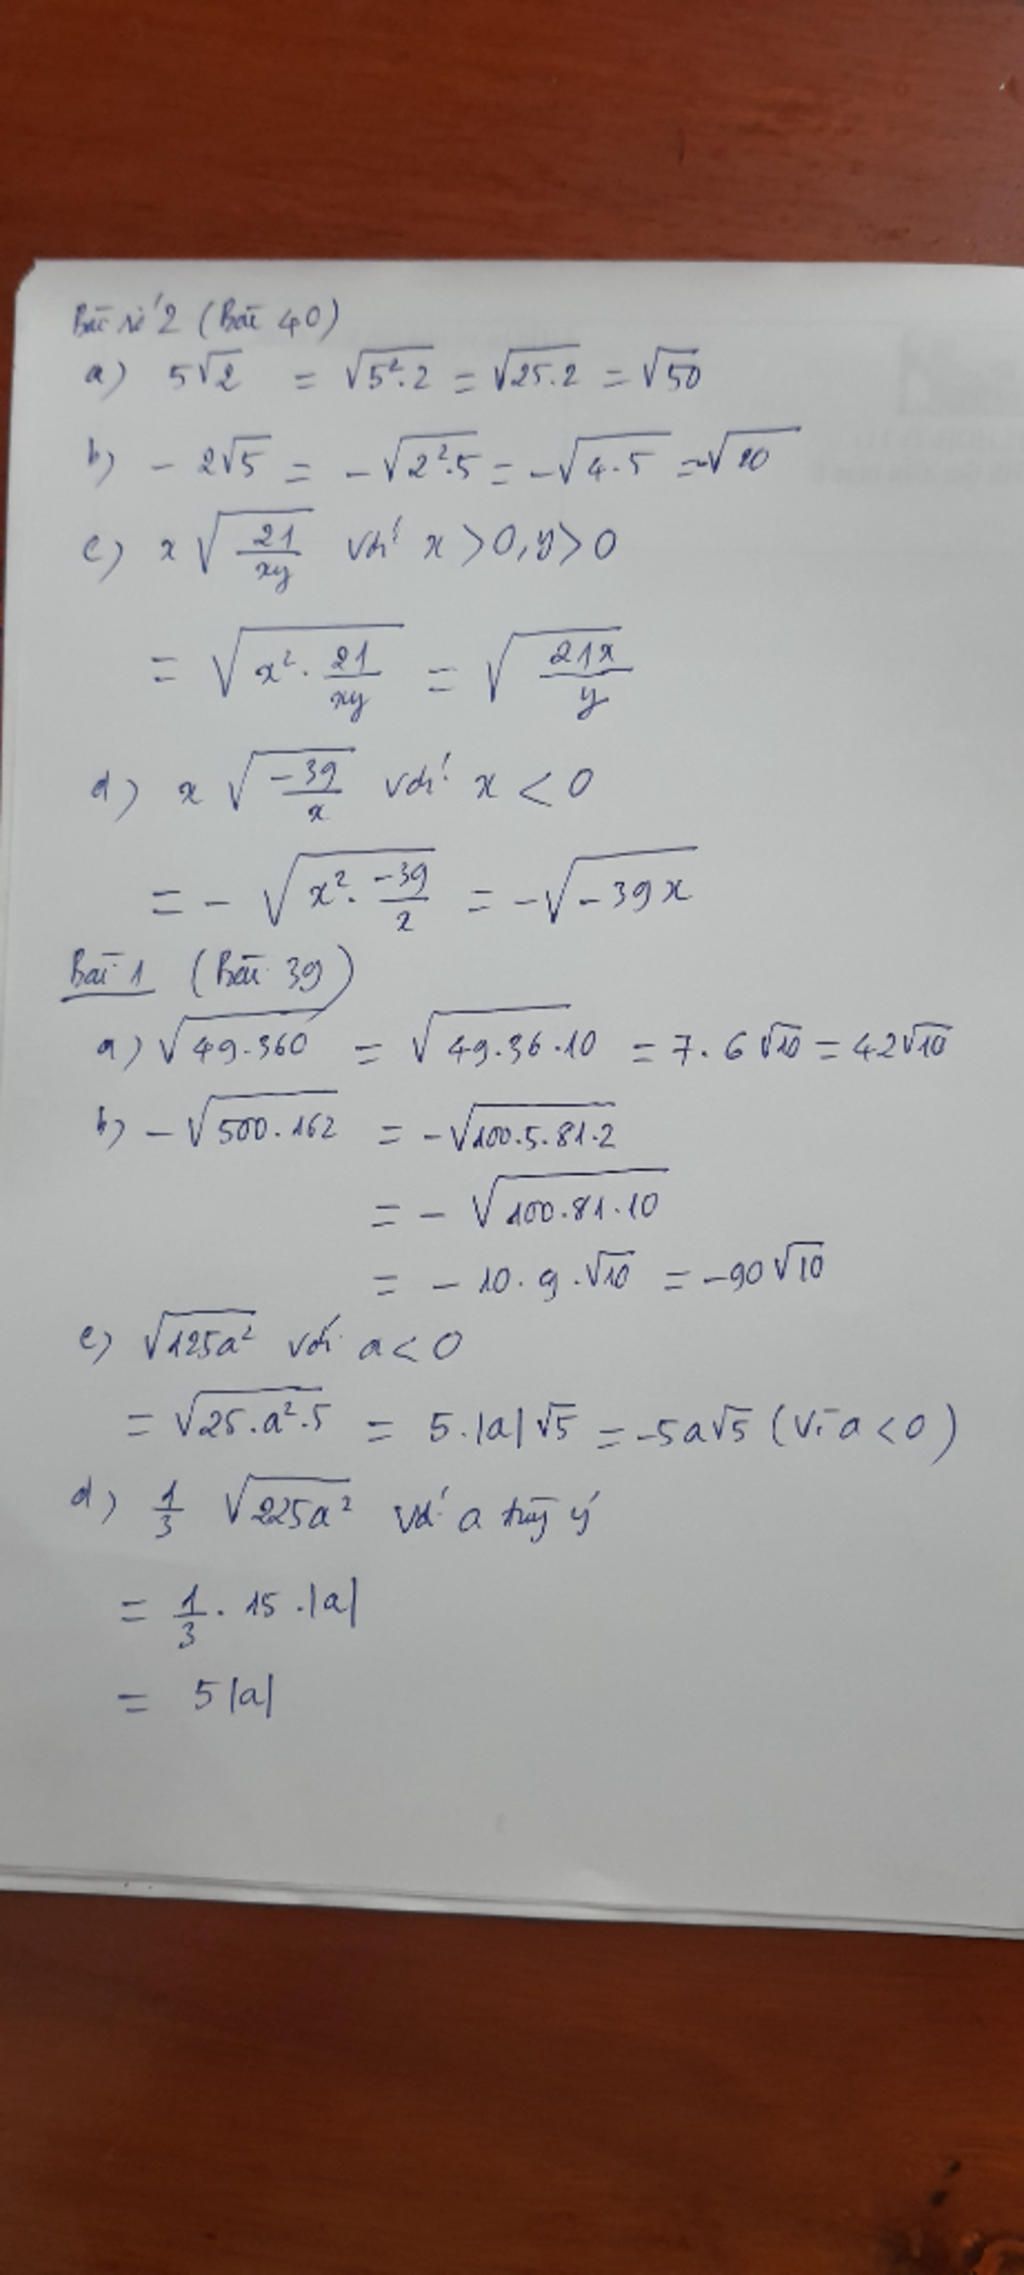 Bài số 2 (Bài 40)
a) 5√2 = √5².2 = √25.2 = √50
b) - 2√5 = -√2².5 = -√4.5 = -√20
c) x√21/xy với x > 0, y > 0
= √x² . 21/xy = √21x/y
d) x √-39/x với x < 0
= - √x² . -39/x = -√-39x
Bài 1 (Bài 39)
a) √49.360 = √49.36.10 = 7. 6√10 = 42√10
b) - √500.162 = -√100.5.81.2
= - √100.81.10
= - 10. 9 .√10 = -90√10
c) √125a² với a < 0
= √25.a².5 = 5.|a|√5 = -5a√5 (Vì a < 0)
d) 1/3 √225a² với a tuỳ ý
= 1/3 . 15 .|a|
= 5|a|